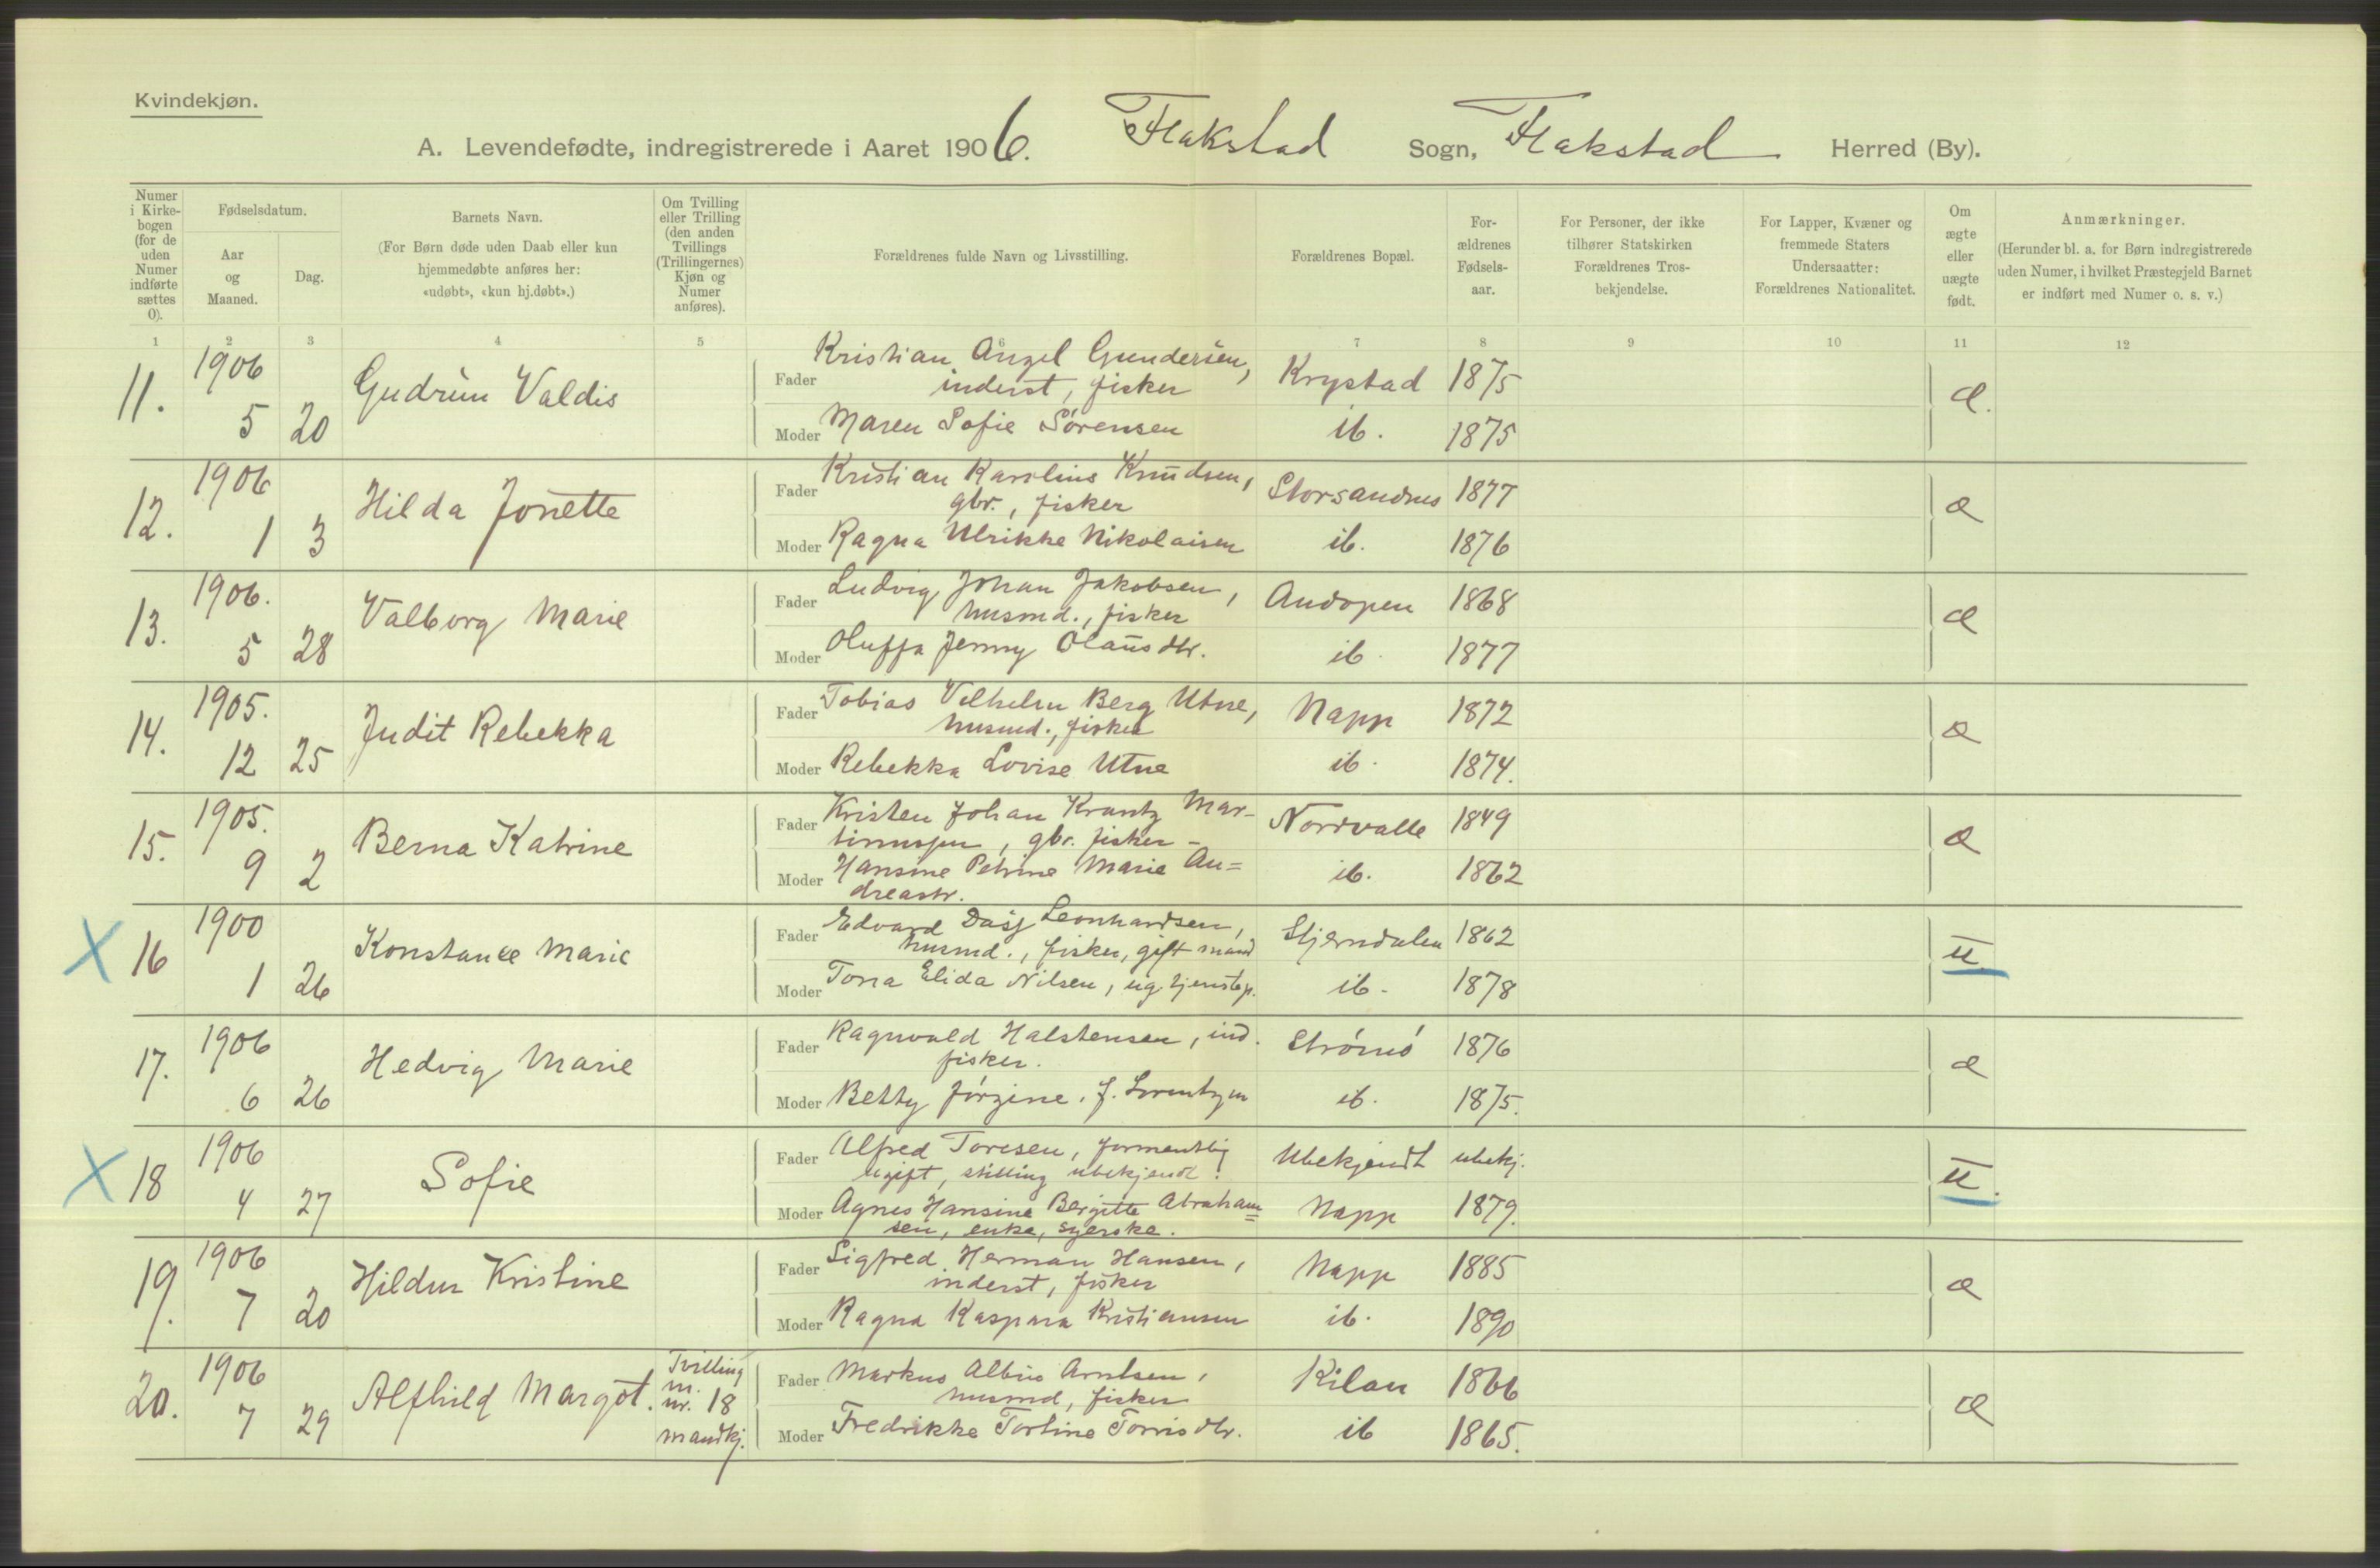 Kvindekjøn.
A. Levendefødte, indregistrerede i Aaret 1906. Flakstad Sogn, Flakstad Herred (By).
Numer i Kirke-bogen (for de uden Numer indførte sættes 0).
Fødselsdatum.
Aar og Maaned.
Dag.
Barnets Navn.
(For Børn døde uden Daab eller kun hjemmedøbte anføres her: «udøbt», «kun hj.døbt».)
Om Tvilling eller Trilling (den anden Tvillings (Trillingernes) Kjøn og Numer anføres).
Forældrenes fulde Navn og Livsstilling.
Forældrenes Bopæl.
For-ældrenes Fødsels-aar.
For Personer, der ikke tilhører Statskirken Forældrenes Tros-bekjendelse.
For Lapper, Kvæner og fremmede Staters Undersaatter: Forældrenes Nationalitet.
Om ægte eller uægte født.
Anmærkninger.
(Herunder bl. a. for Børn indregistrerede uden Numer, i hvilket Præstegjeld Barnet er indført med Numer o. s. v.)
1 2 3 4 5 6 7 8 9 10 11 12
11. 1906 5 20 Gudrun Valdis
Fader Kristian Angel Gundersen, Krystad 1875 æ.
inderst, fisker
Moder Maren Sofie Sørensen ib. 1875
12. 1906 1 3 Hilda Jonette
Fader Kristian Karolius Knudsen, Storsandnes 1877 æ
gbr., fisker
Moder Ragna Ulrikke Nikolaisen ib. 1876
13. 1906. 5 28 Valborg Marie
Fader Ludvig Johan Jakobsen, Andopen 1868 æ
husmd., fisker
Moder Oluffa Jenny Olausdtr. ib 1877
14. 1905. 12 25 Judit Rebekka
Fader Tobias Vilhelm Berg Utne, Napp 1872 æ
husmd., fisker
Moder Rebekka Lovise Utne ib. 1874.
15. 1905. 9 2 Berna Katrine
Fader Kristen Johan Krantz Mar- Nordvalle 1849 æ
tinussen, gbr. fisker -
Moder Hansine Petrine Marie An= ib. 1862
dreastr.
X 16 1900 1 26 Konstance Marie
Fader Edvard Dasj Leonhardsen, Stjerndalen 1862 u.
husmd., fisker, gift mand
Moder Tora Elida Nilsen, ug. tjenstep. ib. 1878
17. 1906 6 26 Hedvig Marie
Fader Ragnvald Halstensen, ind. Strømø 1876 æ
fisker.
Moder Betty Jørgine. f. Lorentzen ib. 1875.
X 18 1906 4 27 Sofie
Fader Alfred Toresen, formentlig Ubekjendt ubekj. u.
ugift, stilling ubekjendt.
Moder Agnes Hansine Bergitte Abraham= Napp 1879.
sen, enke, syerske.
19. 1906 7 20 Hildur Kristine
Fader Sigfred Herman Hansen, Napp 1885 æ
inderst, fisker
Moder Ragna Kaspara Kristiansen ib. 1890
20. 1906 7 29 Alfhild Margot. Tvilling m. nr. 18 mandkj.
Fader Markus Albius Arntsen, Kilan 1866 æ
husmd, fisker
Moder Fredrikke Tortine Torrisdtr. ib 1865.